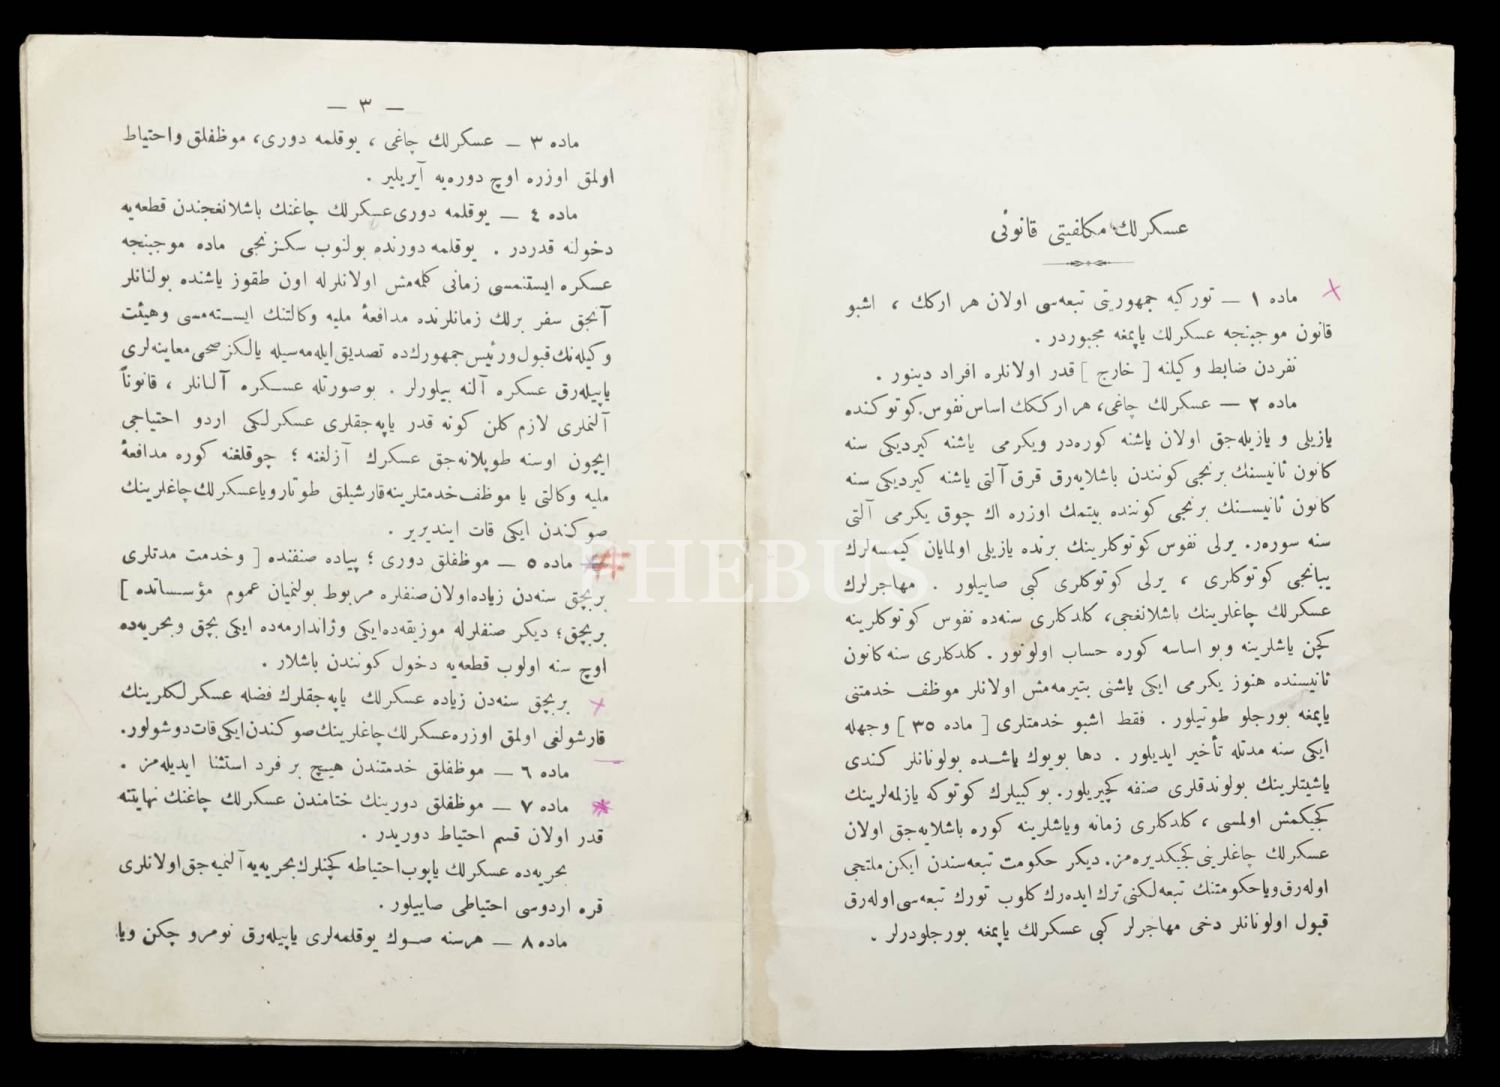 عسكرلك مكلفيتى قانونى
ماده ١ — توركيه جمهوريتى تبعه‌سى اولان هر اركك ، اشبو
قانون موجبنجه عسكرلك ياپمغه مجبوردر .
نفردن ضابط وكيلنه [ خارج ] قدر اولانلره افراد دينور .
ماده ٢ — عسكرلك چاغى، هر ارككك اساس نفوس كوتوكنده
يازيلى و يازيله‌جق اولان ياشنه كوره‌در ويكرمى ياشنه كيرديكى سنه
كانون ثانيسنك برنجى كونندن باشلايه‌رق قرق آلتى ياشنه كيرديكى سنه
كانون ثانيسنك برنجى كوننده بيتمك اوزره اك چوق يكرمى آلتى
سنه سورر. يرلى نفوس كوتوكلرينك برنده يازيلى اولمايان كيمسه‌لرك
يبانجى كوتوكلرى ، يرلى كوتوكلرى كبى صاييلور . مهاجرلرك
عسكرلك چاغلرينك باشلانغجى، كلدكلرى سنه‌ده نفوس كوتوكلرينه
كچن ياشلرينه وبو اساسه كوره حساب اولونور . كلدكلرى سنه كانون
ثانيسنده هنوز يكرمى ايكى ياشنى بتيرمه‌مش اولانلر موظف خدمتنى
ياپمغه بورجلو طوتيلور . فقط اشبو خدمتلرى [ ماده ٣٥ ] وجهله
ايكى سنه مدتله تأخير ايديلور . دها بويوك ياشده بولونانلر كندى
ياشيتلرينك بولوندقلرى صنفه كچيريلور. بو كبيلرك كوتوكه يازلمه‌لرينك
كجيكمش اولمسى ، كلدكلرى زمانه وياشلرينه كوره باشلايه‌جق اولان
عسكرلك چاغلرينى كجيكديره‌مز. ديكر حكومت تبعه‌سندن ايكن ملتجى
اوله‌رق ويا حكومتنك تبعه‌لكنى ترك ايده‌رك كلوب تورك تبعه‌سى اوله‌رق
قبول اولونانلر دخى مهاجرلر كبى عسكرلك ياپمغه بورجلودرلر .
— ٣ —
ماده ٣ — عسكرلك چاغى ، يوقلمه دورى، موظفلق واحتياط
اولمق اوزره اوچ دوره‌يه آيريلير .
ماده ٤ — يوقلمه دورى عسكرلك چاغنك باشلانغجندن قطعه‌يه
دخولنه قدردر . يوقلمه دورنده بولنوب سكزنجى ماده موجبنجه
عسكره ايستنمسى زمانى كلمه‌مش اولانلرله اون طقوز ياشنده بولنانلر
آنجق سفر برلك زمانلرنده مدافعهٔ مليه وكالتنك ايسته‌مسى وهيئت
وكيله‌نك قبول ورئيس جمهورك ده تصديق ايله‌مه‌سيله يالكز صحى معاينه‌لرى
ياپيله‌رق عسكره آلنه بيلورلر . بو صورتله عسكره آلنانلر ، قانوناً
آلنملرى لازم كلن كونه قدر ياپه‌جقلرى عسكرلكى اردو احتياجى
ايچون اوسنه طوپلانه‌جق عسكرك آزلغنه ؛ چوقلغنه كوره مدافعهٔ
مليه وكالتى يا موظف خدمتلرينه قارشيلق طوتار ويا عسكرلك چاغلرينك
صوكندن ايكى قات اينديرير .
ماده ٥ — موظفلق دورى ؛ پياده صنفنده [ وخدمت مدتلرى
بربچق سنه‌دن زياده اولان صنفلره مربوط بولنميان عموم مؤسساتده ]
بربچق؛ ديكر صنفلرله موزيقه‌ده ايكى وژاندارمه‌ده ايكى بچق وبحريه‌ده
اوچ سنه اولوب قطعه‌يه دخول كونندن باشلار .
بربچق سنه‌دن زياده عسكرلك ياپه‌جقلرك فضله عسكرلكلرينك
قارشولغى اولمق اوزره عسكرلك چاغلرينك صوكندن ايكى قات دوشولور.
ماده ٦ — موظفلق خدمتندن هيچ بر فرد استثنا ايديله‌مز .
ماده ٧ — موظفلق دورينك ختامندن عسكرلك چاغنك نهايتنه
قدر اولان قسم احتياط دوريدر .
بحريه‌ده عسكرلك ياپوب احتياطه كچنلرك بحريه‌يه آلنميه‌جق اولانلرى
قره اردوسى احتياطى صاييلور .
ماده ٨ — هر سنه صوك يوقلمه‌لرى ياپيله‌رق نومرو چكن ويا
PHEBUS